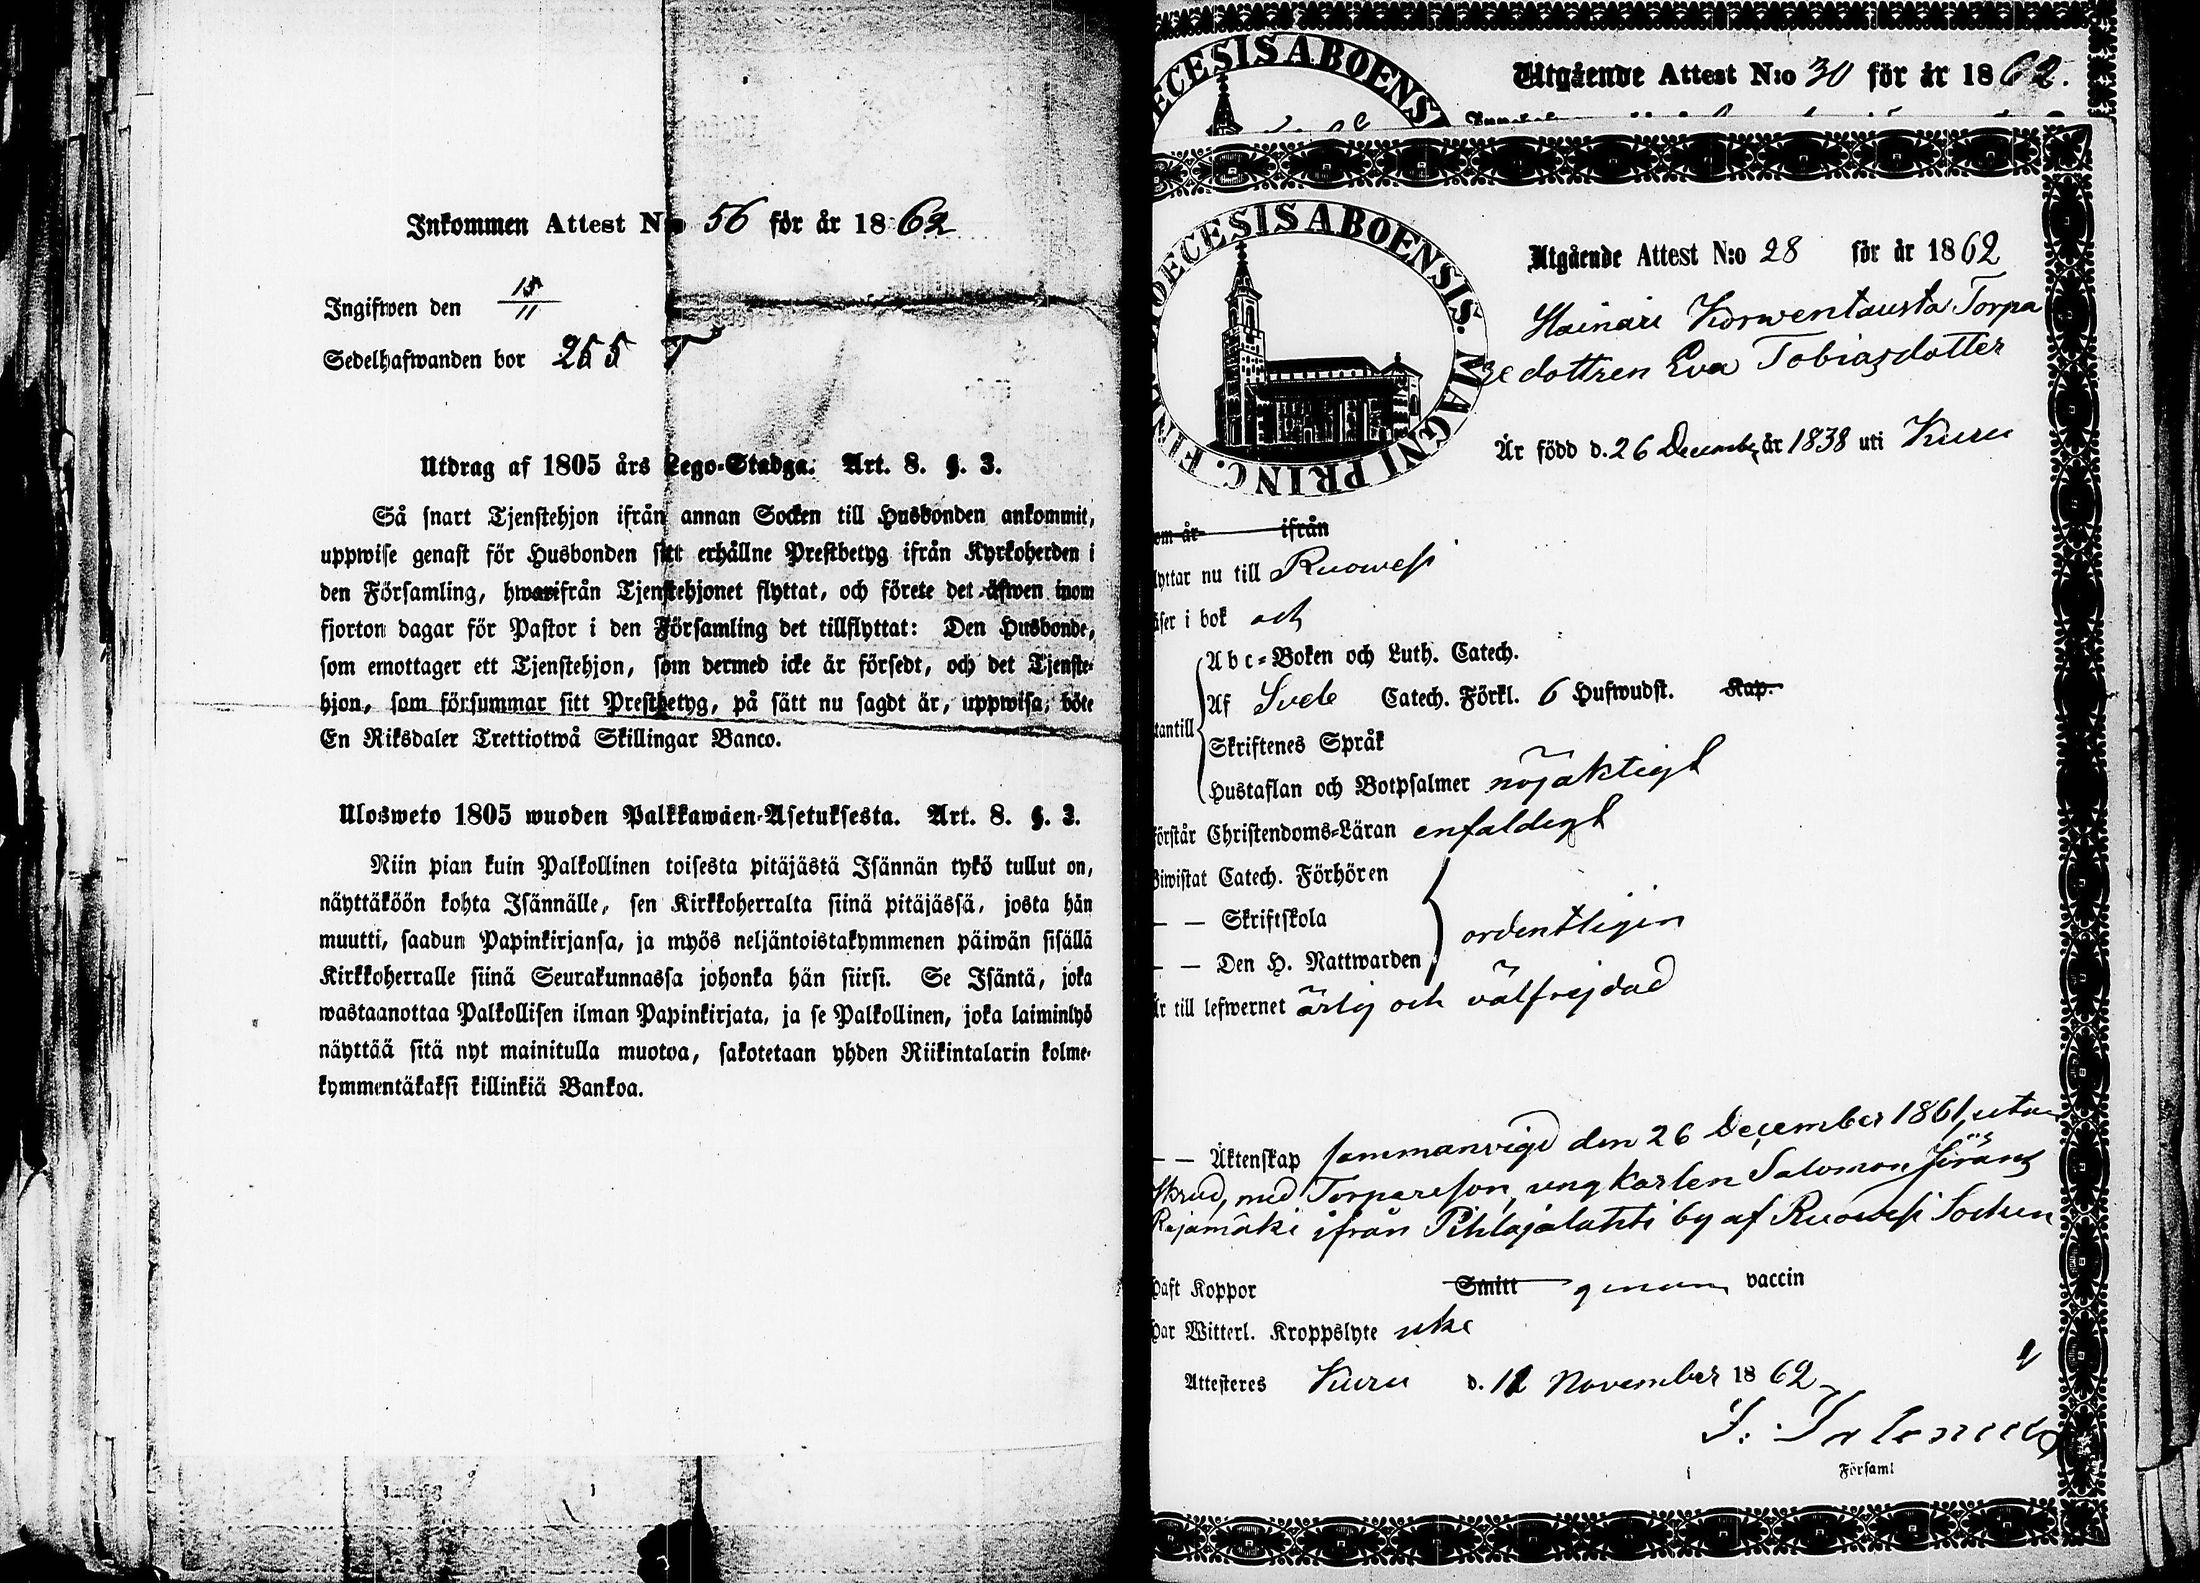 Inkommen Attest N:o 56 för år 1862
Ingifwen den 15/11
Sedelhafwanden bor 255
Utdrag af 1805 års Lego-Stadga. Art. 8. §. 3.
Så snart Tjenstehjon ifrån annan Socken till Husbonden ankommit,
uppwise genast för Husbonden sitt erhållne Prestbetyg ifrån Kyrkoherden i
den Församling, hwarifrån Tjenstehjonet flyttat, och förete det äfwen inom
fjorton dagar för Pastor i den Församling det tillflyttat: Den Husbonde,
som emottager ett Tjenstehjon, som dermed icke är försedt, och det Tjenste-
hjon, som försummar sitt Prestbetyg, på sätt nu sagdt är, uppwisa, böte
En Riksdaler Trettiotwå Skillingar Banco.
Ulosweto 1805 wuoden Palkkawäen-Asetuksesta. Art. 8. §. 3.
Niin pian kuin Palkollinen toisesta pitäjästä Isännän tykö tullut on,
näyttäköön kohta Isännälle, sen Kirkkoherralta siinä pitäjässä, josta hän
muutti, saadun Papinkirjansa, ja myös neljäntoistakymmenen päiwän sisällä
Kirkkoherralle siinä Seurakunnassa johonka hän siirsi. Se Isäntä, joka
wastaanottaa Palkollisen ilman Papinkirjata, ja se Palkollinen, joka laiminlyö
näyttää sitä nyt mainitulla muotoa, sakotetaan yhden Riikintalarin kolme-
kymmentäkaksi killinkiä Bankoa.
ECESIS ABOENS
Utgående Attest N:o 30 för år 1862.
DIOECESIS ABOENSIS. MAGNI PRINC. FINL
Utgående Attest N:o 28 för år 1862
Hainari Korwentausta Torpa
re dottren Eva Tobiasdotter
Är född d. 26 December år 1838 uti Kuru
om år ifrån
lyttar nu till Ruowesi
äser i bok och
Abc-Boken och Luth. Catech.
Af Sveb Catech. Förkl. 6 Hufwudst. Kap.
tantill
Skriftenes Språk
Hustaflan och Botpsalmer nöjaktigt
örstår Christendoms-Läran enfaldigt
Biwistat Catech. Förhören
— — Skriftskola
ordentligen
— — Den H. Nattwarden
Är till lefwernet ärlig och välfrejdad
— — Äktenskap sammanvigd den 26 December 1861, utan
skrud, med Torpareson, ung karlen Salomon Göransson
Rajamäki ifrån Pihlajalahti by af Ruowesi Socken
Haft Koppor Smitt genom vaccin
Har Witterl. Kroppslyte icke
Attesteres Kuru d. 12 November 1862
Församl